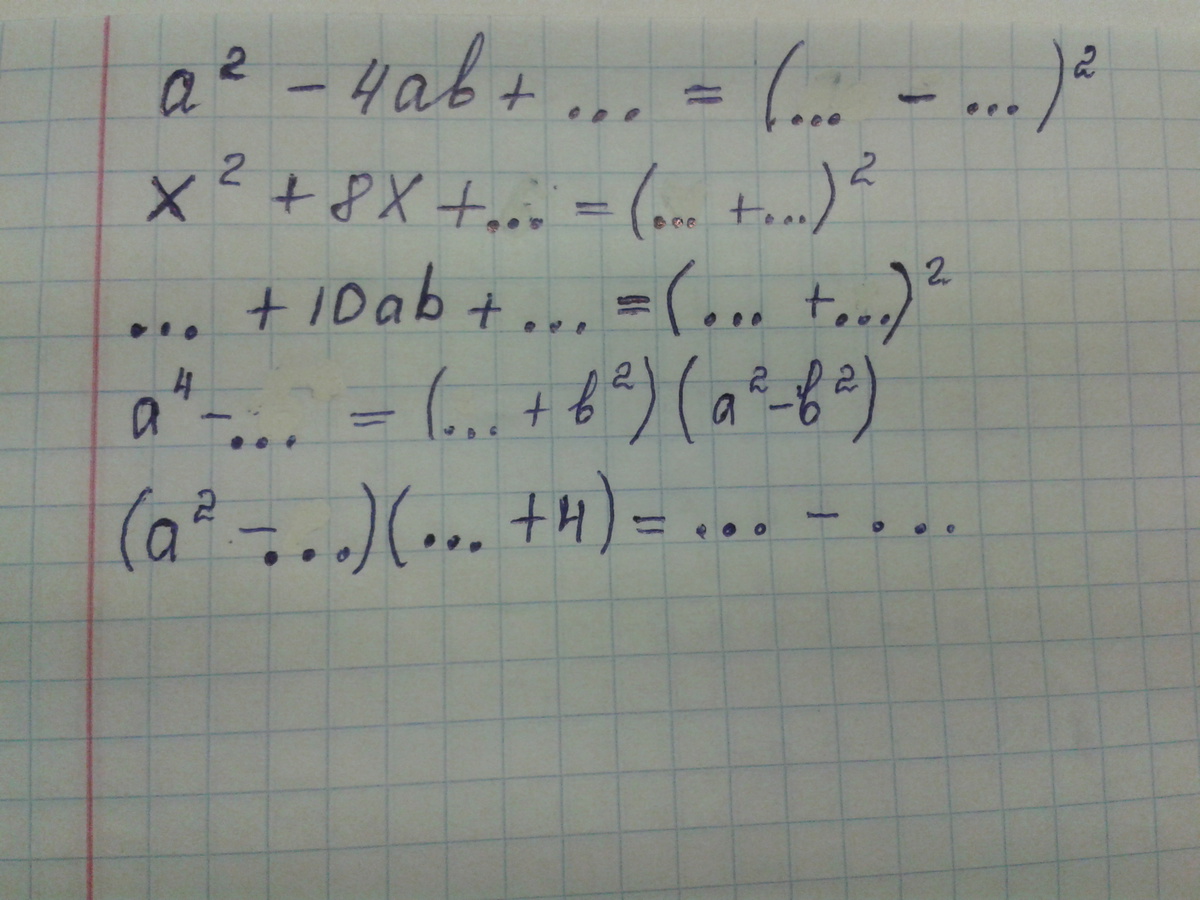 a² - 4ab + ... = (... - ...)²
x² + 8x + ... = (... + ...)²
... + 10ab + ... = (... + ...)²
a⁴ - ... = (... + b²)(a² - b²)
(a² - ...)(... + 4) = ... - ...